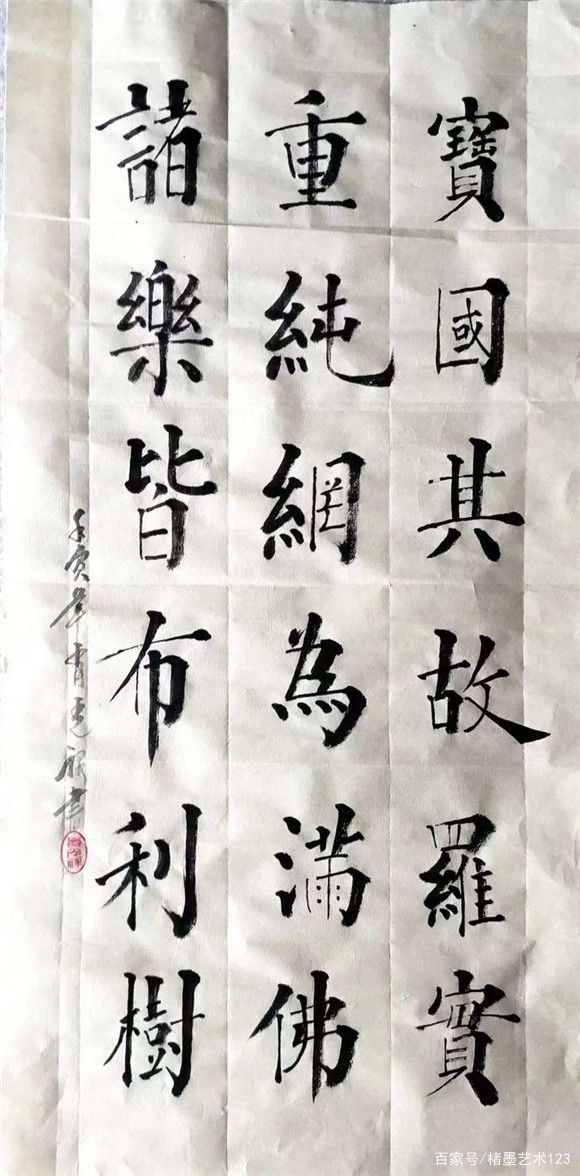 寶國其故羅實
重純網為滿佛
諸樂皆布利樹
壬寅年
書
百家号/楮墨艺术123